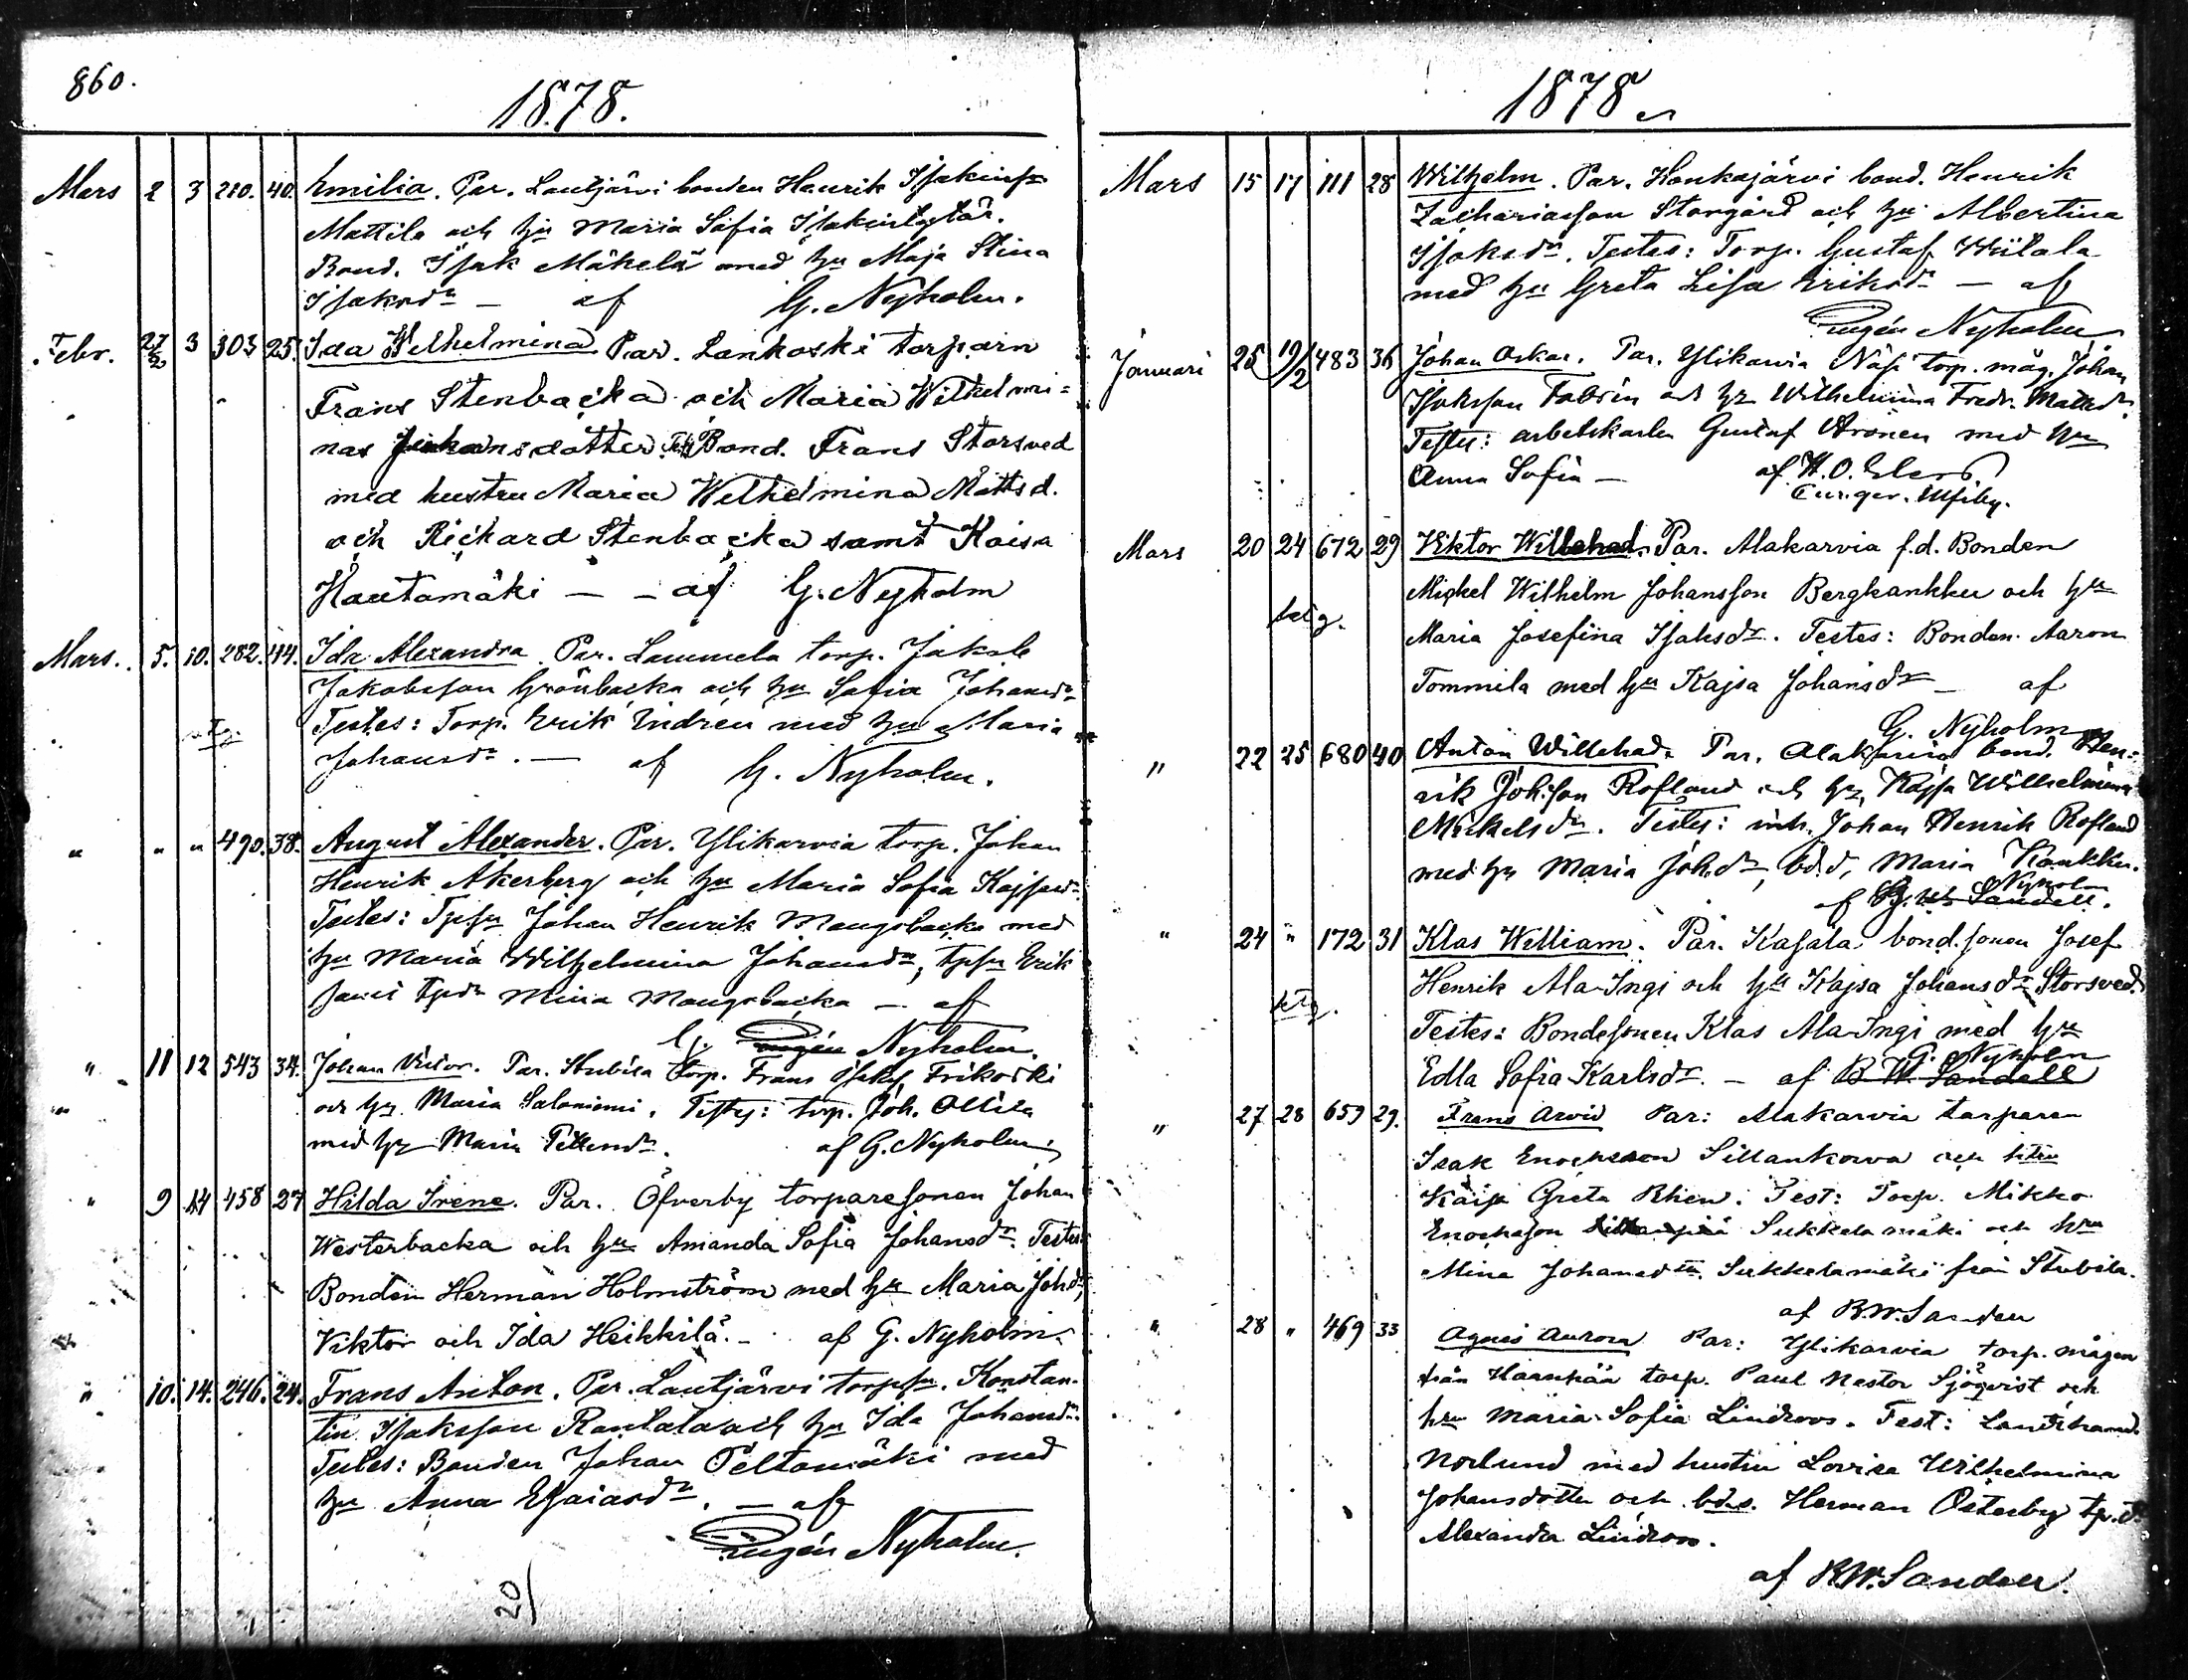 860.
1878.
Mars 2 3 210. 40. Emilia. Par. Lautjärvi bonden Henrik
Mattila och hu Maria Sofia
Bond. Isak Mäkelä med hu Maja Stina
Isaksdr — af G. Nyholm.
Febr. 27/2 3 303 25. Ida Wilhelmina Par. Lankoski torparn
Frans Stenbacka och Maria Wilhelmi=
nas Johansdotter Bond. Frans Storsved
med hustru Maria Wilhelmina Mattsd.
och Rickard Stenbacka samt Kaisa
Hautamäki — - af G. Nyholm
Mars. 5. 10. 282. 44. Ida Alexandra. Par. Lammela torp. Jakob
Jakobsson Grönbacka och hu Sofia Johansdr
Testes: Torp. Erik Indrén med hu Maria
Johansdr. — af G. Nyholm.
" " " 490. 38. August Alexander. Par. Ylikarvia torp. Johan
Henrik Åkerberg och hu Maria Sofia
Testes: Johan Henrik Mangsbacka med
hu Maria Wilhelmina Johansdr, Erik
Mina Mangsbacka — af
G. Eugén Nyholm.
" 11 12 543 34. Johan Victor. Par. Stubila torp. Frans
och hu Maria Salomoni. Testes: torp. Joh. Ollila
med hu Maria af G. Nyholm.
" 9 14 458 27 Hilda Irene. Par. Öfverby torparesonen Johan
Westerbacka och hu Amanda Sofia Johansdr. Testes:
Bonden Herman Holmström med hu Maria Johdr,
Viktor och Ida Heikkilä. - af G. Nyholm.
" 10. 14. 246. 24. Frans Anton. Par. Lautjärvi Konstan-
tin Isaksson Rantala och hu Ida Johansdr.
Testes: Bonden Johan Peltomäki med
hu Anna Esaiasdr. — af
Eugén Nyholm.
20)
1878
Mars 15 17 111 28 Wilhelm. Par. Honkajärvi bond. Henrik
Zachariasson Storgård och hu Albertina
Isaksdr. Testes: Torp. Gustaf Wiitala
med hu Greta Lisa Eriksdr — af
Eugén Nyholm
Januari 25 19/2 483 36 Johan Oskar. Par. Ylikarvia Näsi torp. måg. Johan
Isaksson Fabrin och hu Wilhelmina Fredr. Mattsdr.
Testes: arbetskarlen Gustaf Aronen med hu
Anna Sofia — af
Mars 20 24 672 29 Viktor Willehad. Par. Alakarvia f.d. Bonden
Mickel Wilhelm Johansson Bergkankku och hu
Maria Josefina Isaksdr. Testes: Bonden Aaron
Tommila med hu Kajsa Johansdr — af
G. Nyholm
" 22 25 680 40 Anton Willehad. Par. Alakarvia bond. Hen-
rik Johsson Rosland och hu Kajsa Wilhelmina
Mickelsdr. Testes: inh. Johan Henrik Rosland
med hu Maria Johdr, bd.d. Maria Kankku.
Nyholm
af G. W. Sandell.
" 24 " 172 31 Klas William. Par. Kasala bond.sonen Josef
Henrik Ala-Ingi och hu Kajsa Johansdr Storsved.
Testes: Bondesonen Klas Ala-Ingi med hu
G. Nyholm
Edla Sofia Karlsdr. - af B. W. Sandell
" 27 28 659 29. Frans Arvid Par: Alakarvia torparen
Isak Enochsson Sillankorva och
Kaisa Greta Rhen. Test: Torp. Mikko
Enochsson Sukkelamäki och hru
Mina Johansdtr. Sukkelamäki från Stubila.
af B.W. Sandell
" 28 " 469 33 Agnes Aurora Par: Ylikarvia torp. mågen
från Haanpää torp. Paul Nestor Sjöqvist och
hru Maria Sofia Lindroos. Test:
Norlund med hustru Lovisa Wilhelmina
Johansdotter och bds. Herman Österby tp.d.
Alexandra Lindroos.
af B.W. Sandell.